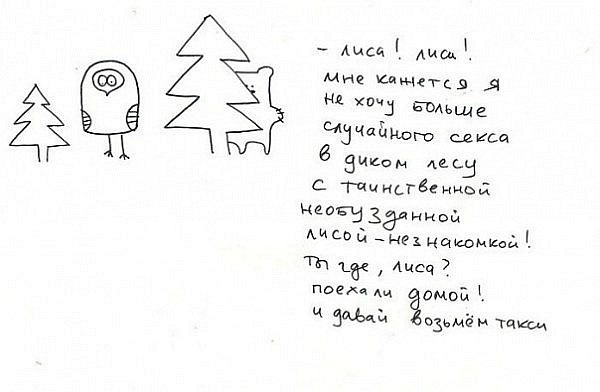 - лиса! лиса!
мне кажется я
не хочу больше
случайного секса
в диком лесу
с таинственной
необузданной
лисой-незнакомкой!
ты где, лиса?
поехали домой!
и давай возьмём такси